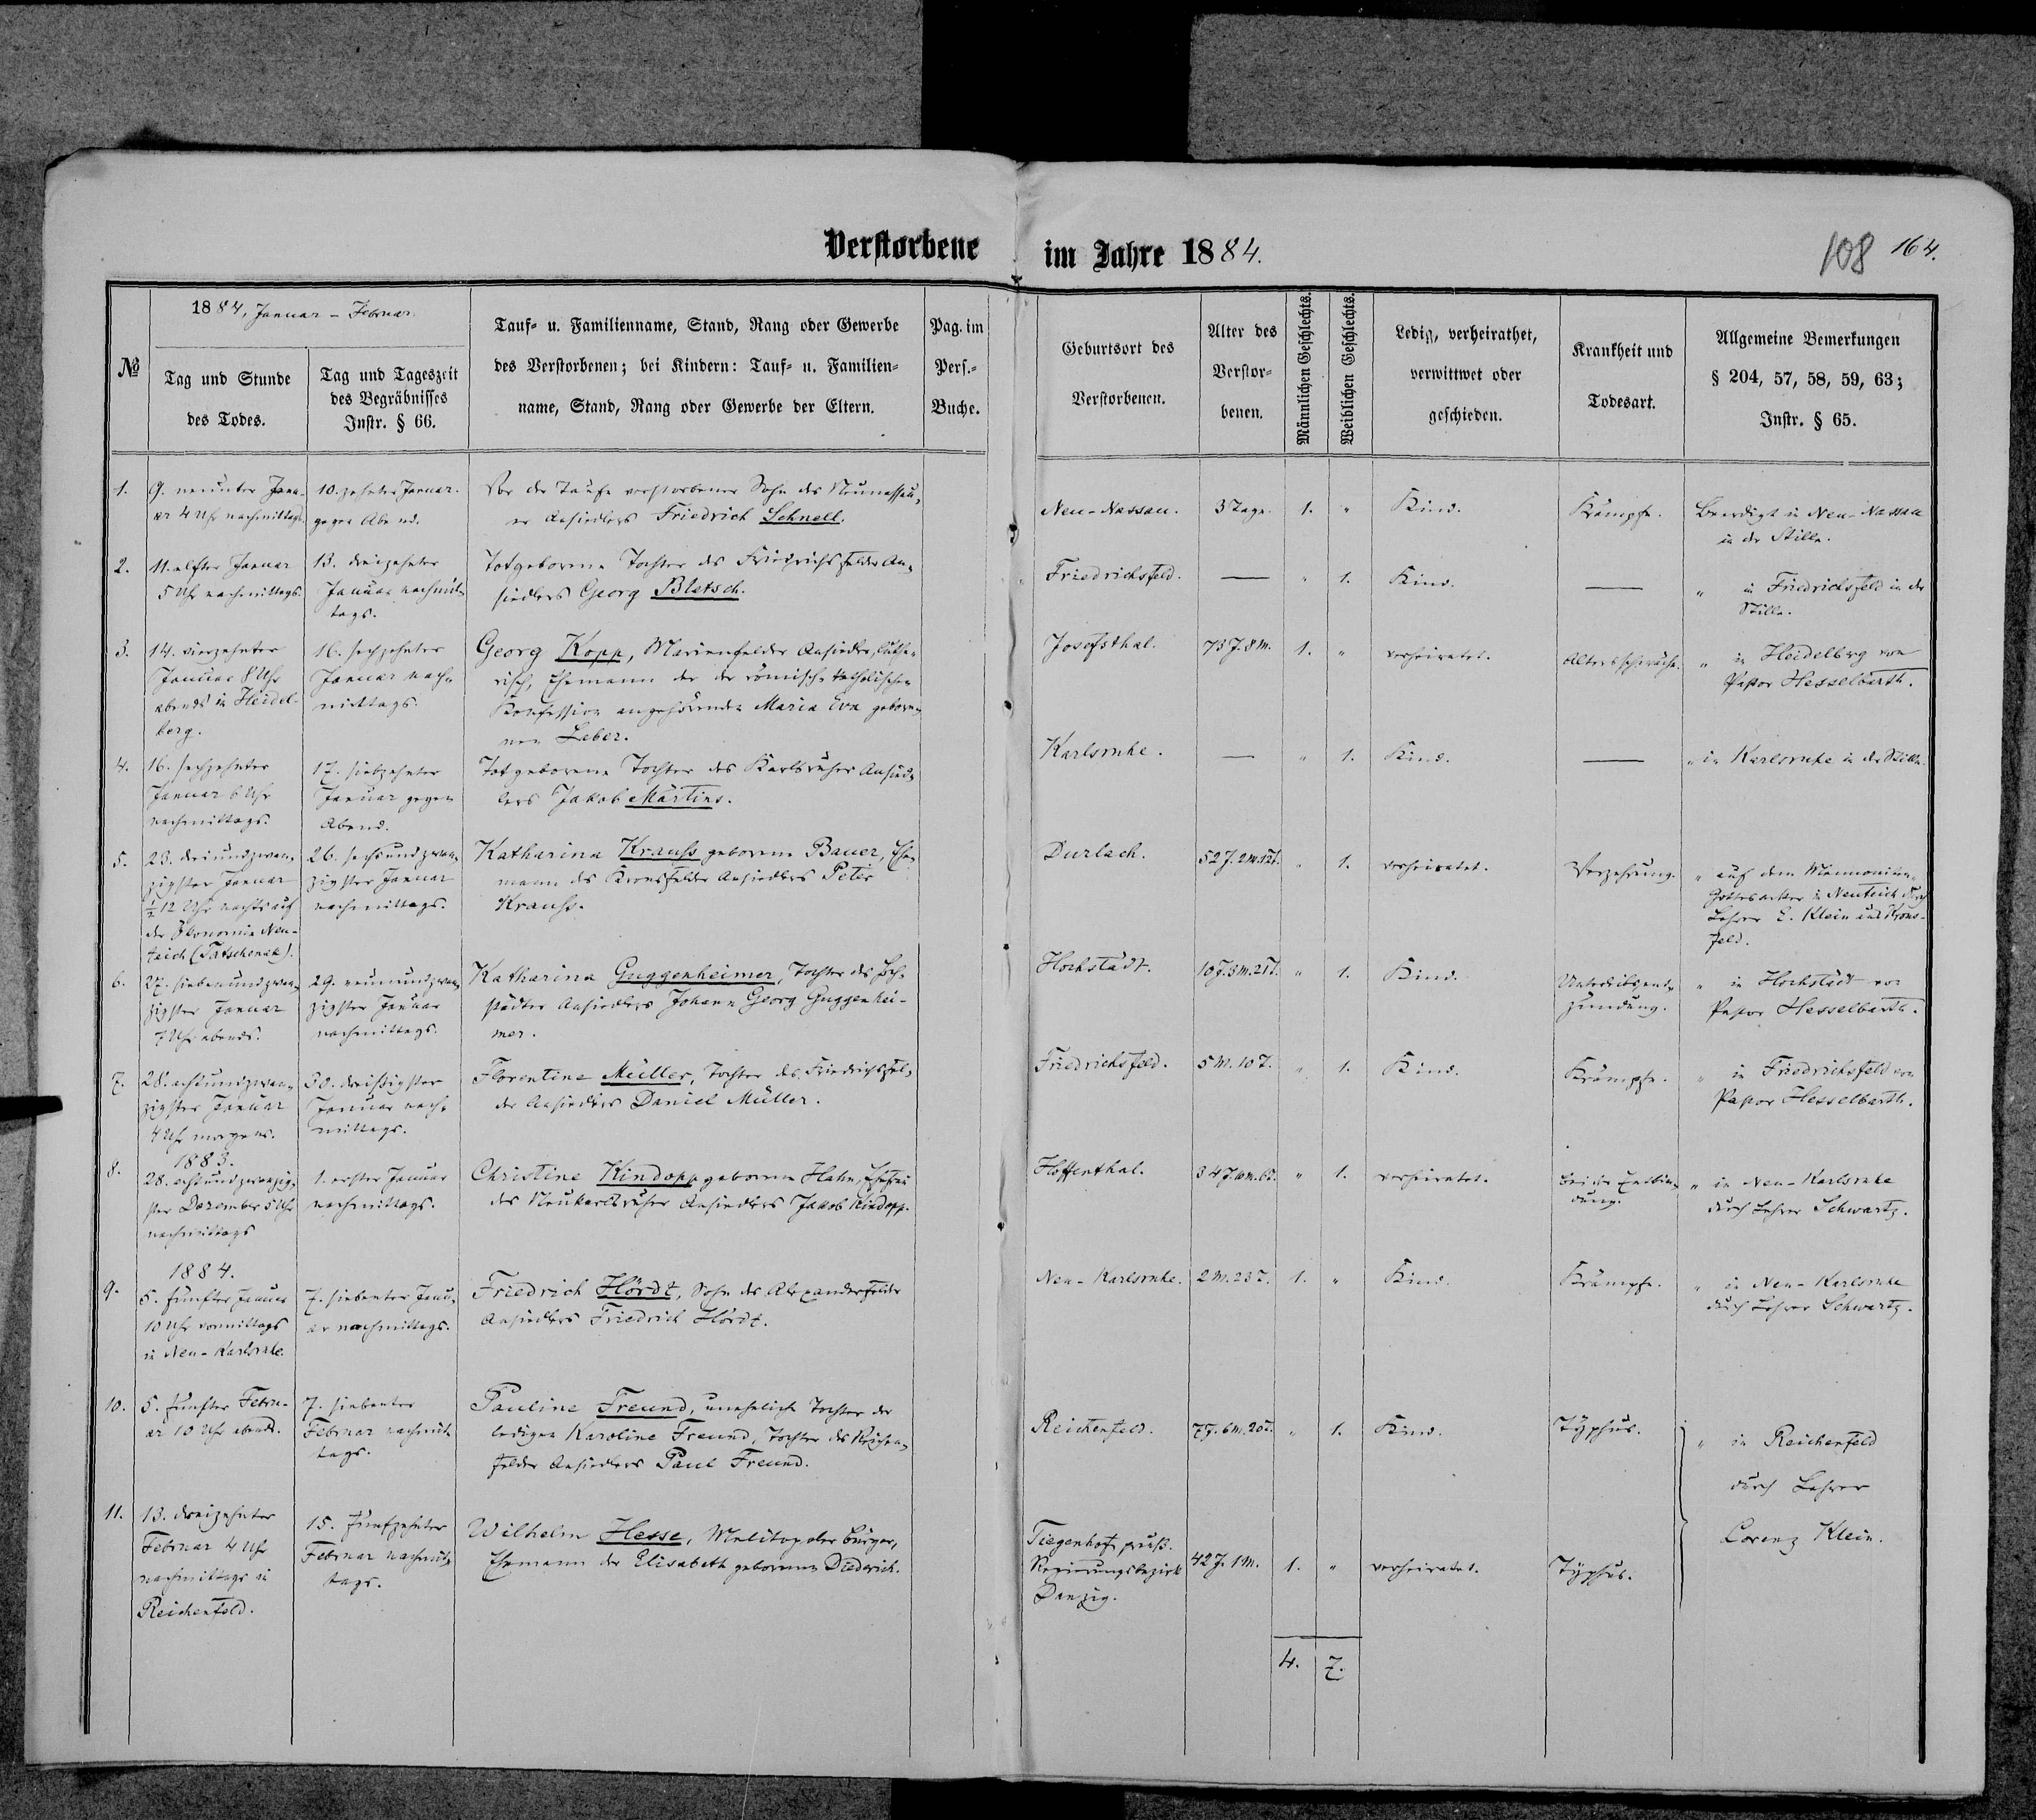 Verstorbene im Jahre 1884.
108 164.
1884, Januar - Februar.
№
Tag und Stunde
des Todes.
Tag und Tageszeit
des Begräbnisses
Instr. § 66.
Tauf- u. Familienname, Stand, Rang oder Gewerbe
des Verstorbenen; bei Kindern: Tauf- u. Familien-
name, Stand, Rang oder Gewerbe der Eltern.
Pag. im
Pers.-
Buche.
Geburtsort des
Verstorbenen.
Alter des
Verstor-
benen.
Männlichen Geschlechts.
Weiblichen Geschlechts.
Ledig, verheirathet,
verwittwet oder
geschieden.
Krankheit und
Todesart.
Allgemeine Bemerkungen
§ 204, 57, 58, 59, 63;
Instr. § 65.
1.
9. neunter Janu-
ar 4 Uhr nachmittags.
10. zehnter Januar.
gegen Abend.
Vor der Taufe verstorbener Sohn des Neunassau-
er Ansiedlers Friedrich Schnell.
Neu-Nassau.
3 Tage.
1.
"
Kind.
Krämpfe.
Beerdigt in Neu-Nassau
in der Stille.
2.
11. elfter Januar
5 Uhr nachmittags.
13. dreizehnter
Januar nachmit-
tags.
Totgeborene Tochter des Friedrichsfelder An-
siedlers Georg Bletsch.
Friedrichsfeld.
—
"
1.
Kind.
—
" in Friedrichsfeld in der
Stille.
3.
14. vierzehnter
Januar 8 Uhr
abends in Heidel-
berg.
16. sechzehnter
Januar nach-
mittags.
Georg Kopp, Marienfelder Ansiedler, luthe-
risch, Ehemann der der römisch-katholischen
Konfession angehörenden Maria Eva gebore-
nen Leber.
Josefsthal.
73 J. 8 M.
1.
"
verheiratet.
Altersschwäche.
" in Heidelberg von
Pastor Hesselbarth.
4.
16. sechzehnter
Januar 6 Uhr
nachmittags.
17. siebzehnter
Januar gegen
Abend.
Totgeborene Tochter des Karlsruher Ansied-
lers Jakob Martins.
Karlsruhe.
—
"
1.
Kind.
—
" in Karlsruhe in der Stille.
5.
23. dreiundzwan-
zigster Januar
½ 12 Uhr nachts auf
der Ökonomie Neu-
teich (Tatschenak).
26. sechsundzwan-
zigster Januar
nachmittags.
Katharina Krauss geborene Bauer, Ehe-
mann des Kronsfelder Ansiedlers Peter
Krauss.
Durlach.
52 J. 2 M. 12 T.
"
1.
verheiratet.
Verzehrung.
" auf dem
Gottesacker in Neuteich durch
Lehrer L. Klein aus Krons-
feld.
6.
27. siebenundzwan-
zigster Januar
7 Uhr abends.
29. neunundzwan-
zigster Januar
nachmittags.
Katharina Guggenheimer, Tochter des Hoch-
städter Ansiedlers Johann Georg Guggenhei-
mer.
Hochstädt.
10 J. 8 M. 21 T.
"
1.
Kind.
Unterleibsent-
zündung.
" in Hochstädt von
Pastor Hesselbarth.
7.
28. achtundzwan-
zigster Januar
4 Uhr morgens.
30. dreißigster
Januar nach-
mittags.
Florentine Müller, Tochter des Friedrichsfel-
der Ansiedlers Daniel Müller.
Friedrichsfeld.
5 M. 10 T.
"
1.
Kind.
Krämpfe.
" in Friedrichsfeld von
Pastor Hesselbarth.
8.
1883.
28. achtundzwanzig-
ster Dezember 5 Uhr
nachmittags
1. erster Januar
nachmittags.
Christine Kindopp geborene Hahn, Ehefrau
des Neukarlsruher Ansiedlers Jakob Kindopp.
Hoffenthal.
34 J.
"
1.
verheiratet.
Bei der Entbin-
dung.
" in Neu-Karlsruhe
durch Lehrer Schwartz.
9.
1884.
5. fünfter Januar
10 Uhr vormittags
in Neu-Karlsruhe.
7. siebenter Janu-
ar nachmittags.
Friedrich Hördt, Sohn des Alexanderfelder
Ansiedlers Friedrich Hördt.
Neu-Karlsruhe.
2 M. 23 T.
1.
"
Kind.
Krämpfe.
" in Neu-Karlsruhe
durch Lehrer Schwartz.
10.
5. fünfter Febru-
ar 10 Uhr abends.
7. siebenter
Februar nachmit-
tags.
Pauline Freund, uneheliche Tochter der
ledigen Karoline Freund, Tochter des Reichen-
felder Ansiedlers Paul Freund.
Reichenfeld.
7 J. 6 M. 20 T.
"
1.
Kind.
Typhus.
" in Reichenfeld
durch Lehrer
Lorenz Klein.
11.
13. dreizehnter
Februar 4 Uhr
nachmittags in
Reichenfeld.
15. fünfzehnter
Februar nachmit-
tags.
Wilhelm Hesse, Melitopoler Bürger,
Ehemann der Elisabeth geborenen Diederich.
Tiegenhof, preuß.
Regierungsbezirk
Danzig.
42 J. 1 M.
1.
"
verheiratet.
Typhus.
4. 7.